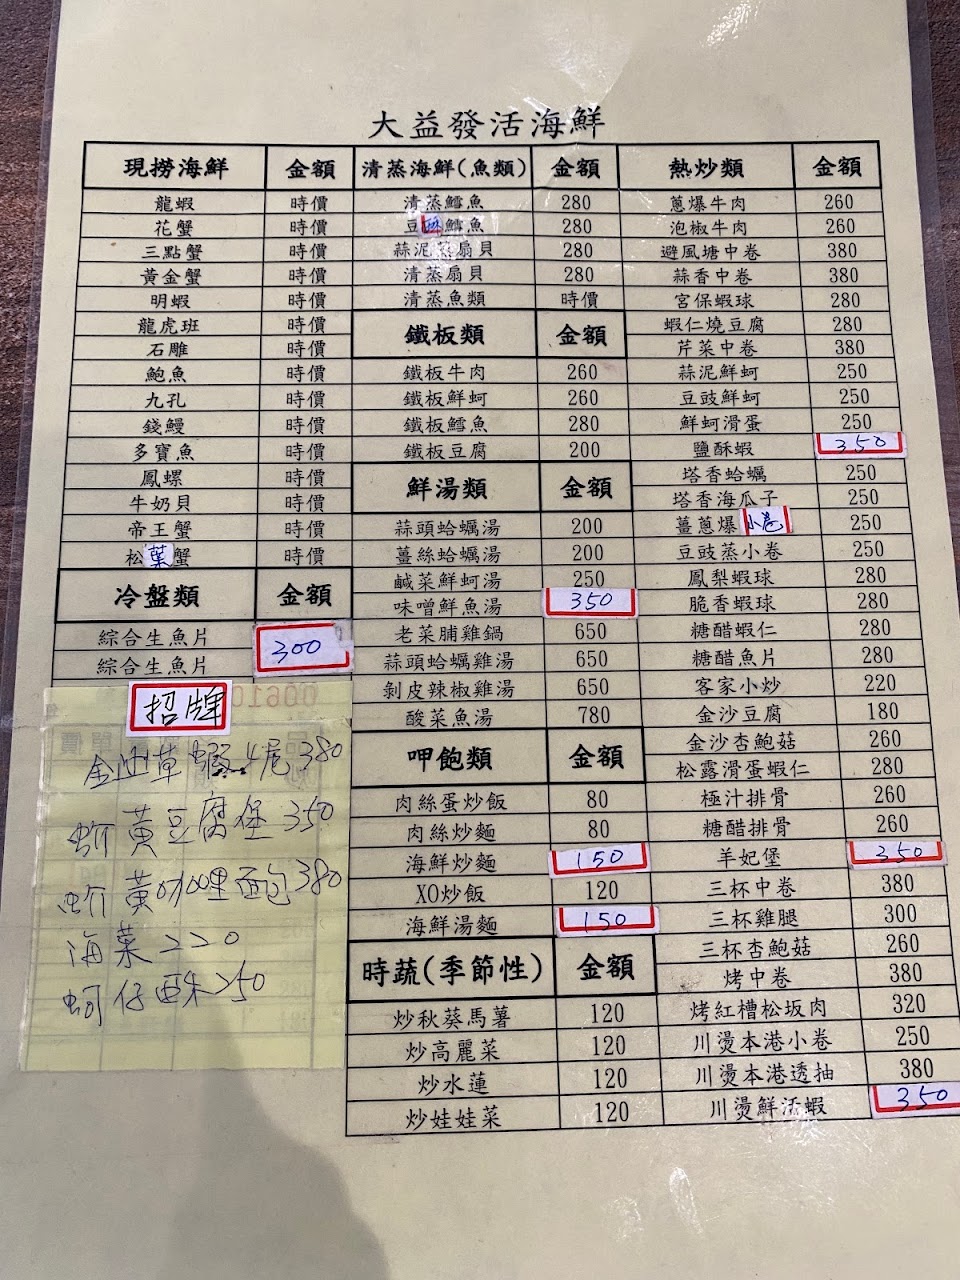 大益發活海鮮
現撈海鮮 金額
龍蝦 時價
花蟹 時價
三點蟹 時價
黃金蟹 時價
明蝦 時價
龍虎班 時價
石雕 時價
鮑魚 時價
九孔 時價
錢鰻 時價
多寶魚 時價
鳳螺 時價
牛奶貝 時價
帝王蟹 時價
松葉蟹 時價
冷盤類 金額
綜合生魚片 300
綜合生魚片
招牌
草蝦 4尾 380
蚧黃豆腐堡 350
蚧黃咖哩面包 380
海菜 220
蚵仔酥 250
清蒸海鮮(魚類) 金額
清蒸鱈魚 280
豆酥鱈魚 280
蒜泥蒸扇貝 280
清蒸扇貝 280
清蒸魚類 時價
鐵板類 金額
鐵板牛肉 260
鐵板鮮蚵 260
鐵板鱈魚 280
鐵板豆腐 200
鮮湯類 金額
蒜頭蛤蠣湯 200
薑絲蛤蠣湯 200
鹹菜鮮蚵湯 250
味噌鮮魚湯 350
老菜脯雞鍋 650
蒜頭蛤蠣雞湯 650
剝皮辣椒雞湯 650
酸菜魚湯 780
呷飽類 金額
肉絲蛋炒飯 80
肉絲炒麵 80
海鮮炒麵 150
XO炒飯 120
海鮮湯麵 150
時蔬(季節性) 金額
炒秋葵馬薯 120
炒高麗菜 120
炒水蓮 120
炒娃娃菜 120
熱炒類 金額
蔥爆牛肉 260
泡椒牛肉 260
避風塘中卷 380
蒜香中卷 380
宮保蝦球 280
蝦仁燒豆腐 280
芹菜中卷 380
蒜泥鮮蚵 250
豆豉鮮蚵 250
鮮蚵滑蛋 250
鹽酥蝦 350
塔香蛤蠣 250
塔香海瓜子 250
薑蔥爆小卷 250
豆豉蒸小卷 250
鳳梨蝦球 280
脆香蝦球 280
糖醋蝦仁 280
糖醋魚片 280
客家小炒 220
金沙豆腐 180
金沙杏鮑菇 260
松露滑蛋蝦仁 280
極汁排骨 260
糖醋排骨 260
羊妃堡 350
三杯中卷 380
三杯雞腿 300
三杯杏鮑菇 260
烤中卷 380
烤紅槽松坂肉 320
川燙本港小卷 250
川燙本港透抽 380
川燙鮮活蝦 350